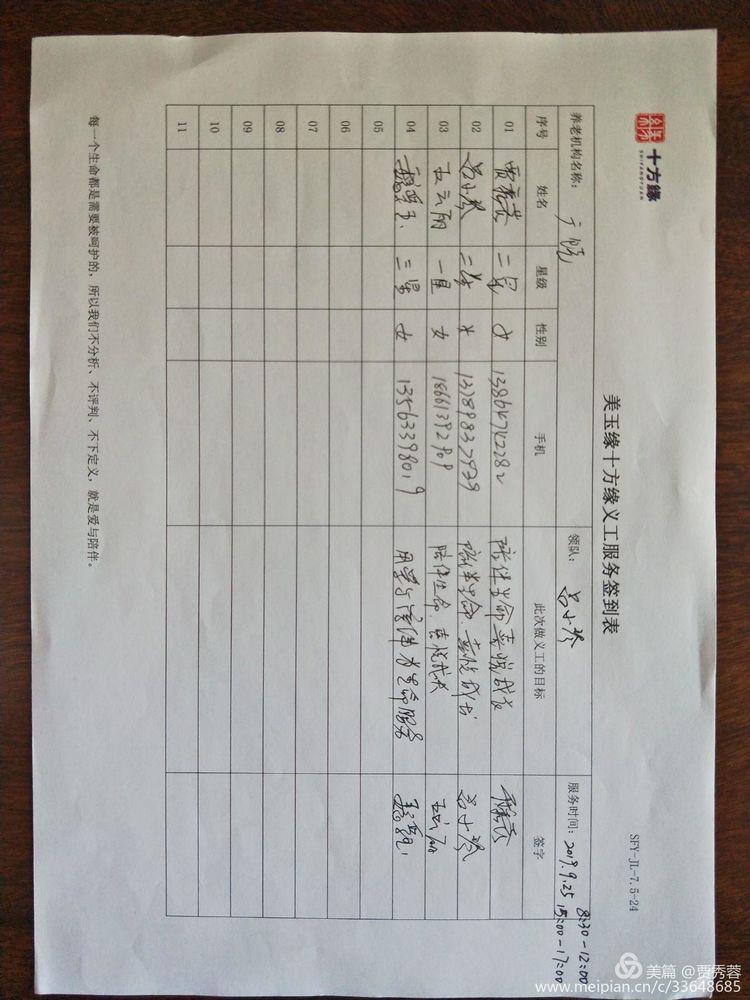 十方缘
SHIFANGYUAN
SFY-JL-7.5-24
美玉缘十方缘义工服务签到表
养老机构名称： 领队： 吕小琴 服务时间：2019.9.25 8:30-12:00 15:00-17:00
序号 姓名 星级 性别 手机 此次做义工的目标 签字
01 贾秀蓉 二星 女 13864742282 陪伴生命 喜悦成长 贾秀蓉
02 吕小琴 二星 女 陪伴生命 喜悦成长 吕小琴
03 王云 一星 女 18661392909 陪伴生命 喜悦成长 王云
04 三星 女 13563398019 用 为生命服务
05
06
07
08
09
10
11
每一个生命都是需要被呵护的，所以我们不分析、不评判、不下定义，就是爱与陪伴。
美篇 @贾秀蓉
www.meipian.cn/c/33648685